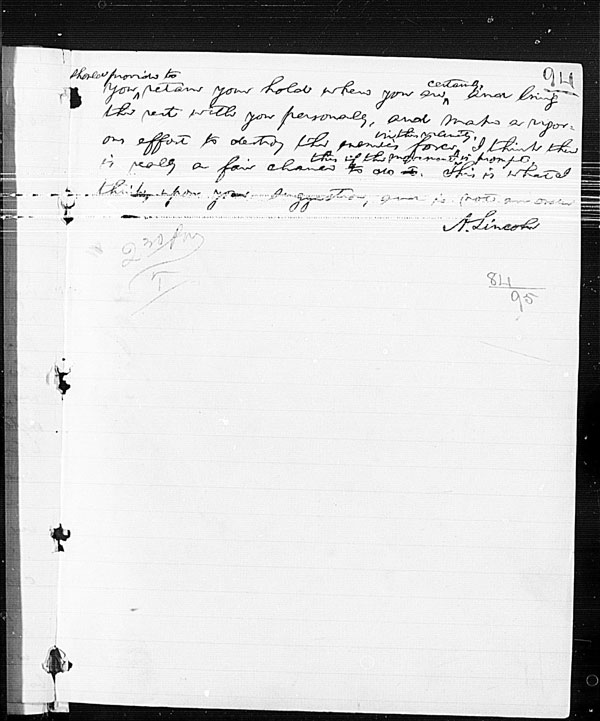 94
should provide to
certainly
You ^ retain your hold where you are ^ and bring
the rest with you personally, and make a vigor-
in this vicinity,
ous effort to destroy the enemies force, I think there
this if the movement is prompt,
is really a fair chance to do . This is what I
think upon your suggestion, and is not an order
A. Lincoln
2 30 PM
84
95